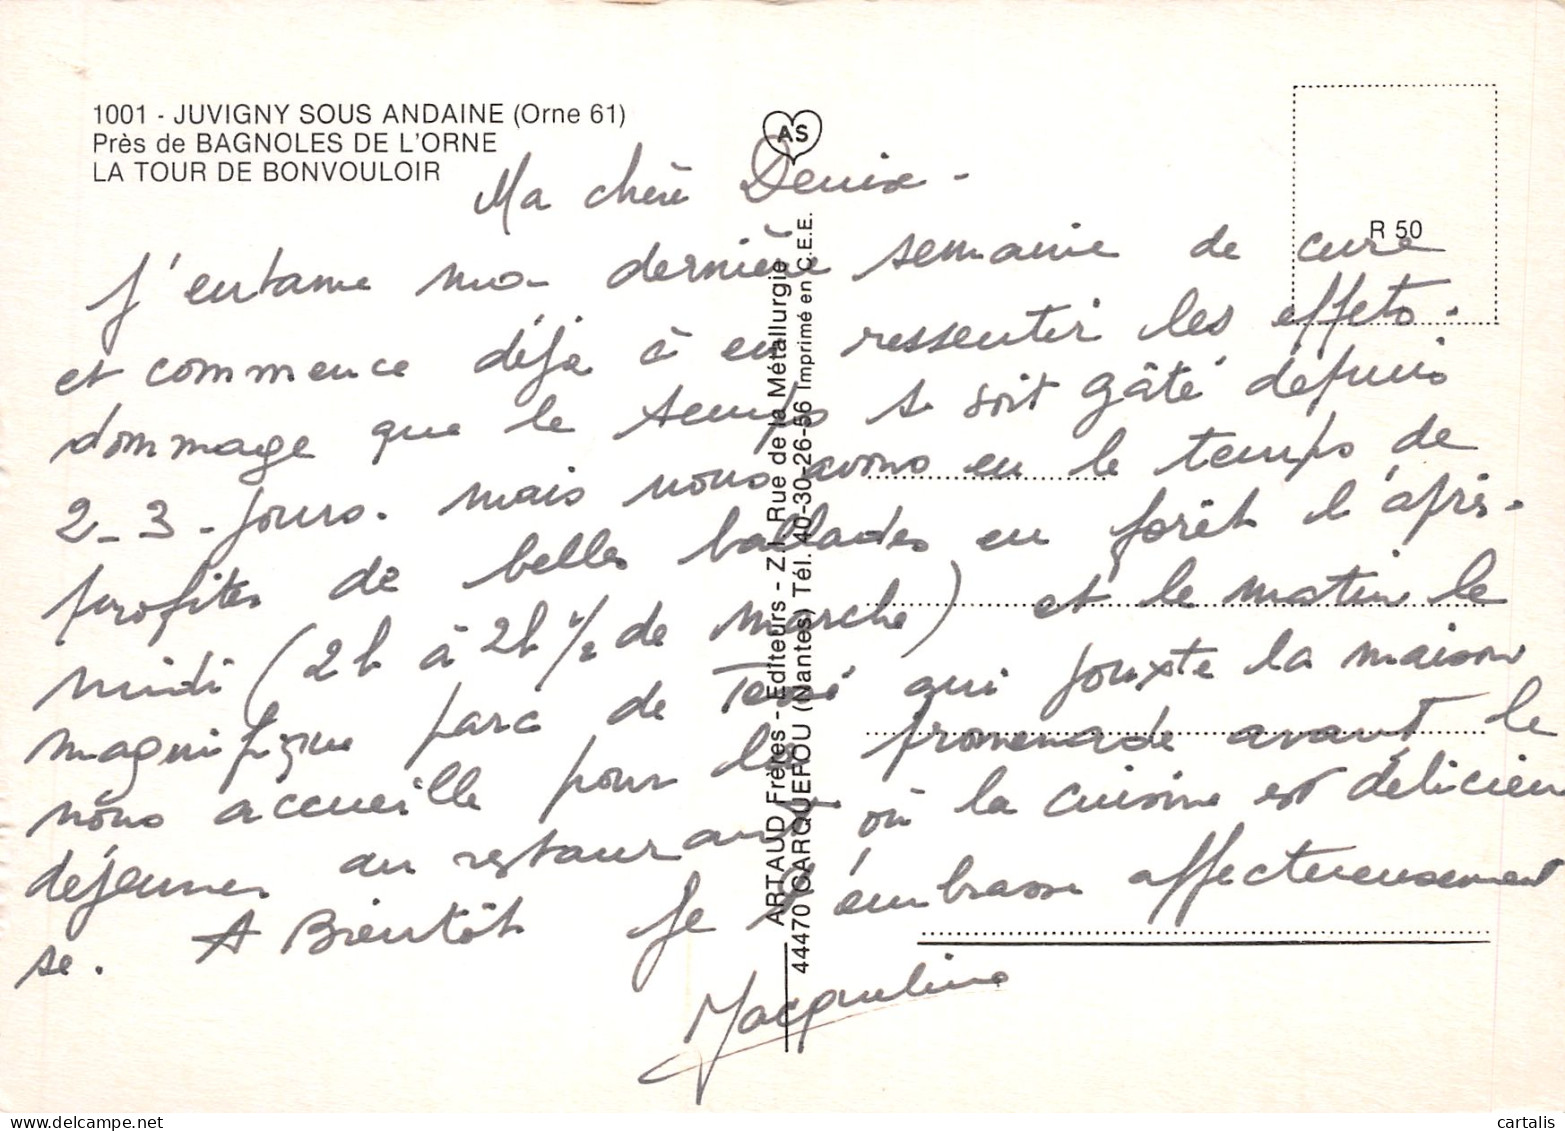 1001 - JUVIGNY SOUS ANDAINE (Orne 61)
Près de BAGNOLES DE L'ORNE
LA TOUR DE BONVOULOIR
AS
R 50
Ma chère Denise -
J'entame ma dernière semaine de cure
et commence déjà à en ressentir les effets.
dommage que le temps se soit gâté depuis
2-3-jours. mais nous avons eu le temps de
profiter de belles ballades en forêt l'après-
midi (2h à 2h 1/2 de marche) et le matin le
magnifique parc de Tessé qui jouxte la maison
nous accueille pour la promenade avant le
déjeuner au restaurant où la cuisine est délicieu
se. A Bientôt Je t'embrasse affectueusement
Jacqueline
ARTAUD Frères - Editeurs - Z.I. Rue de la Métallurgie
44470 CARQUEFOU (Nantes) Tél. 40-30-26-56 Imprimé en C.E.E.
www.delcampe.net
cartalis